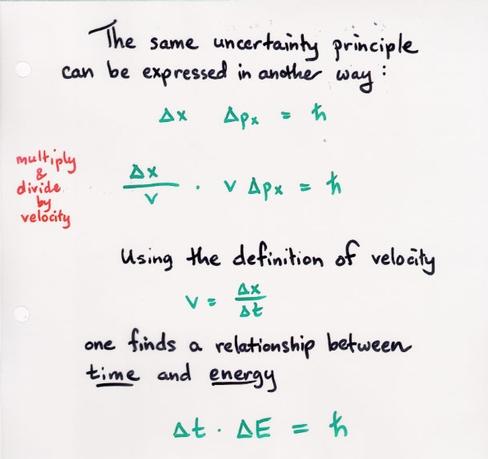 The same uncertainty principle
can be expressed in another way:
Δx Δpx = ħ
multiply
&
divide
by
velocity
Δx / v · v Δpx = ħ
Using the definition of velocity
v = Δx / Δt
one finds a relationship between
time and energy
Δt · ΔE = ħ